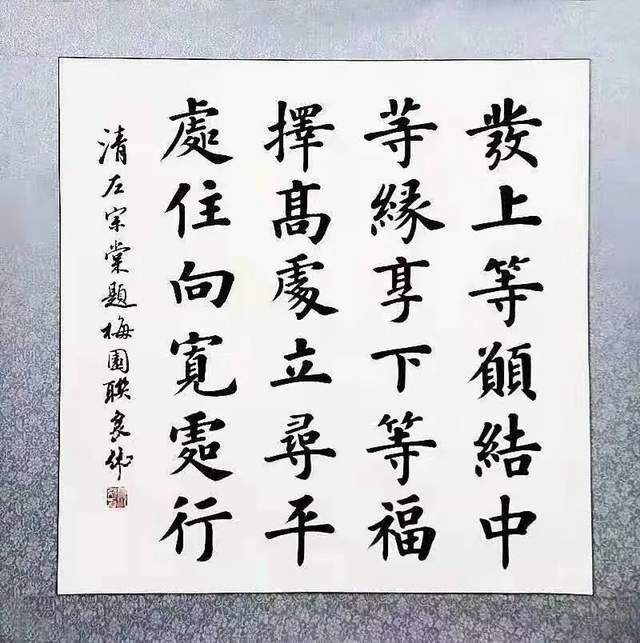 發上等願結中
等緣享下等福
擇高處立尋平
處住向寬處行
清左宗棠題梅園聯